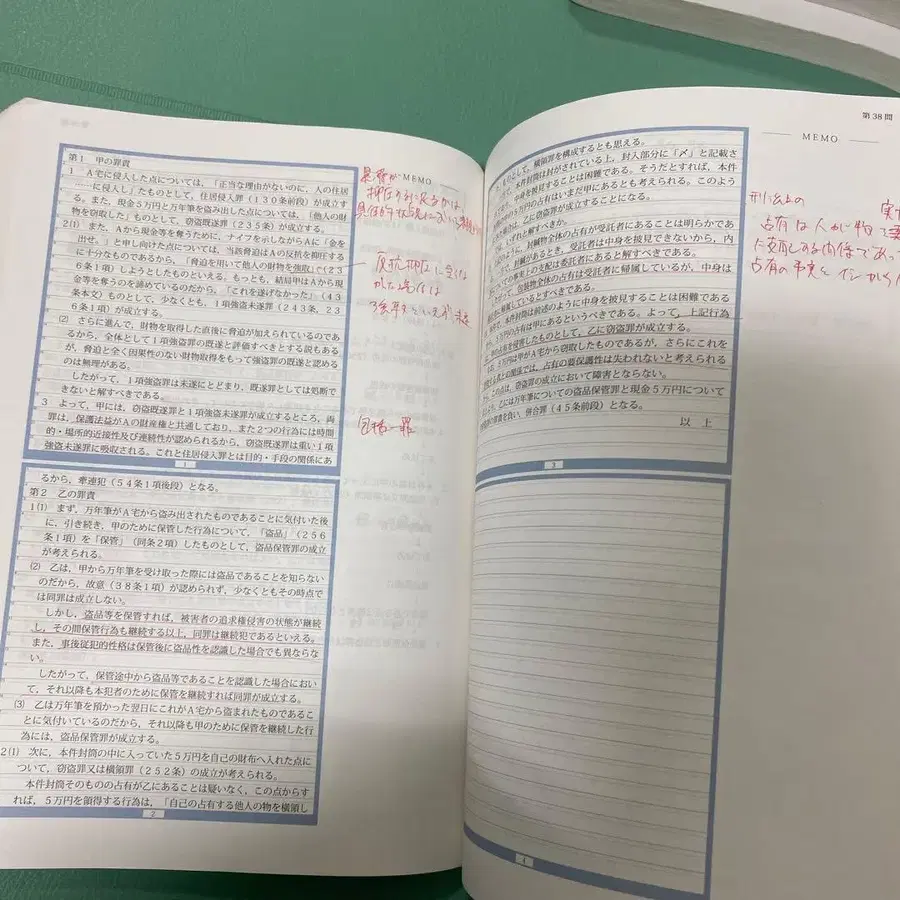 第1 甲の罪責
1 A宅に侵入した点については,「正当な理由がないのに,人の住居
……に侵入し」たものとして,住居侵入罪(130条前段)が成立す
る。また,現金5万円と万年筆を盗み出した点については,「他人の財
物を窃取した」ものとして,窃盗既遂罪(235条)が成立する。
2⑴ また,Aから現金等を奪うために,ナイフを示しながらAに「金を
出せ。」と申し向けた点については,当該脅迫はAの反抗を抑圧する
に十分なものであるから,「脅迫を用いて他人の財物を強取」(23
6条1項)しようとしたものといえる。もっとも,結局甲はAから現
金等を奪うのを諦めているのだから,「これを遂げなかった」(43
条本文)ものとして,少なくとも,1項強盗未遂罪(243条,23
6条1項)が成立する。
⑵ さらに進んで,財物を取得した直後に脅迫が加えられているのであ
るから,全体として1項強盗罪の既遂と評価すべきとする説もある
が,脅迫と全く因果性のない財物取得をもって強盗罪の既遂と認める
のは無理がある。
したがって,1項強盗罪は未遂にとどまり,既遂罪としては処断で
きないと解すべきである。
3 よって,甲には,窃盗既遂罪と1項強盗未遂罪が成立するところ,両
罪は,保護法益がAの財産権と共通しており,また2つの行為には時間
的・場所的近接性及び連続性が認められるから,窃盗既遂罪は重い1項
強盗未遂罪に吸収される。これと住居侵入罪とは目的・手段の関係にあ
1
るから,牽連犯(54条1項後段)となる。
第2 乙の罪責
1⑴ まず,万年筆がA宅から盗み出されたものであることに気付いた後
に,引き続き,甲のために保管した行為について,「盗品」(256
条1項)を「保管」(同条2項)したものとして,盗品保管罪の成立
が考えられる。
⑵ 乙は,甲から万年筆を受け取った際には盗品であることを知らない
のだから,故意(38条1項)が認められず,少なくともその時点で
は同罪は成立しない。
しかし,盗品等を保管すれば,被害者の追求権侵害の状態が継続
し,その間保管行為も継続する以上,同罪は継続犯であるといえる。
また,事後従犯的性格は保管後に盗品性を認識した場合でも異ならな
い。
したがって,保管途中から盗品等であることを認識した場合におい
て,それ以降も本犯者のために保管を継続すれば同罪が成立する。
⑶ 乙は万年筆を預かった翌日にこれがA宅から盗まれたものであるこ
とに気付いているのだから,それ以降も甲のために保管を継続した行
為には,盗品保管罪が成立する。
2⑴ 次に,本件封筒の中に入っていた5万円を自己の財布へ入れた点に
ついて,窃盗罪又は横領罪(252条)の成立が考えられる。
本件封筒そのものの占有が乙にあることは疑いなく,この点からす
れば,5万円を領得する行為は,「自己の占有する他人の物を横領し
2
MEMO
反抗抑圧に至らな
かった場合は
包括一罪
た」ものとして,横領罪を構成するとも思える。
本件封筒は封がされている上,封入部分に「〆」と記載さ
中身を披見することは困難である。そうだとすれば,本件
の5万円の占有はいまだ甲にあるとも考えられる。このよう
は,乙に窃盗罪が成立することになる。
いずれと解すべきか。
封緘物全体の占有が受託者にあることは明らかであ
封緘があるとき,受託者は中身を披見できないから,内
の事実上の支配は委託者にあると解すべきである。
包装物全体の占有は受託者に帰属しているが,中身は
に帰属しているとすべきである。
本件封筒は前述のように中身を披見することは困難である
5万円の占有は甲にあるというべきである。よって,上記行為
の占有を侵害したものとして,乙に窃盗罪が成立する。
5万円は甲がA宅から窃取したものであるが,さらにこれを
との関係では,占有の要保護性は失われないと考えられる
この点は,窃盗罪の成立において障害とならない。
乙には万年筆についての盗品保管罪と現金5万円について
の罪責を負い,併合罪(45条前段)となる。
以 上
3
4
第38問
MEMO
刑法上の
占有は人が物を